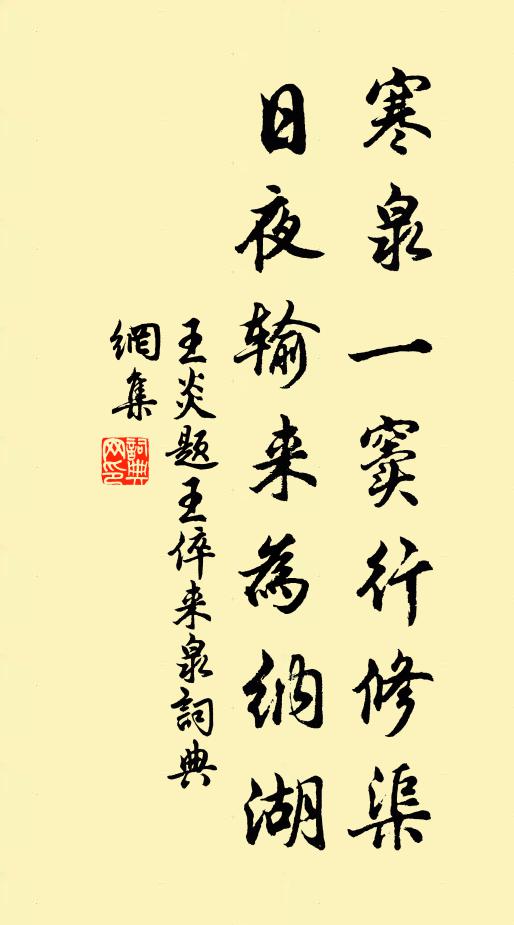 寒泉一窦行修渠
日夜输来為纳湖
王炎题王倅来泉詞典
網集
詞典網印